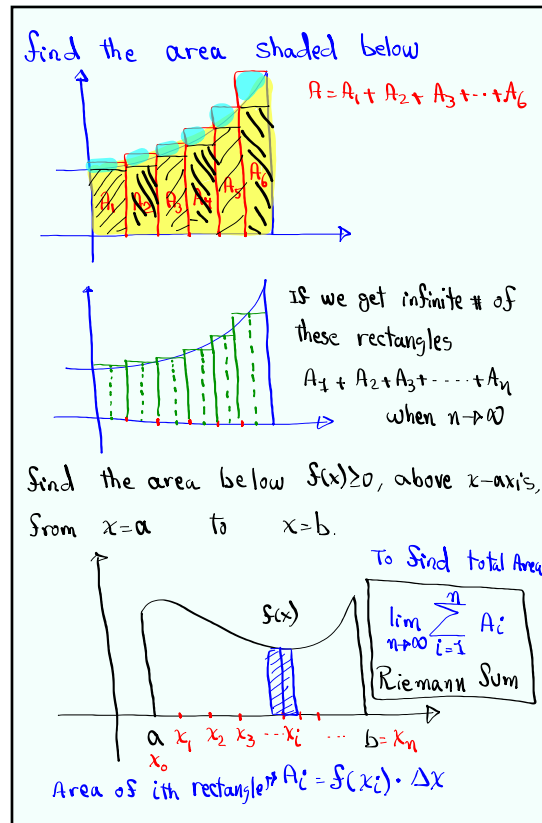 find the area shaded below
A = A₁ + A₂ + A₃ + ··· + A₆
A₁ A₂ A₃ A₄ A₅ A₆
If we get infinite # of
these rectangles
A₁ + A₂ + A₃ + ····· + Aₙ
when n→∞
find the area below f(x)≥0, above x-axis,
from x=a to x=b.
To find total Area
f(x)
lim n→∞ Σ i=1 n Aᵢ
Riemann Sum
a x₁ x₂ x₃ ··· xᵢ ... b = xₙ
x₀
Area of ith rectangle → Aᵢ = f(xᵢ) · Δx